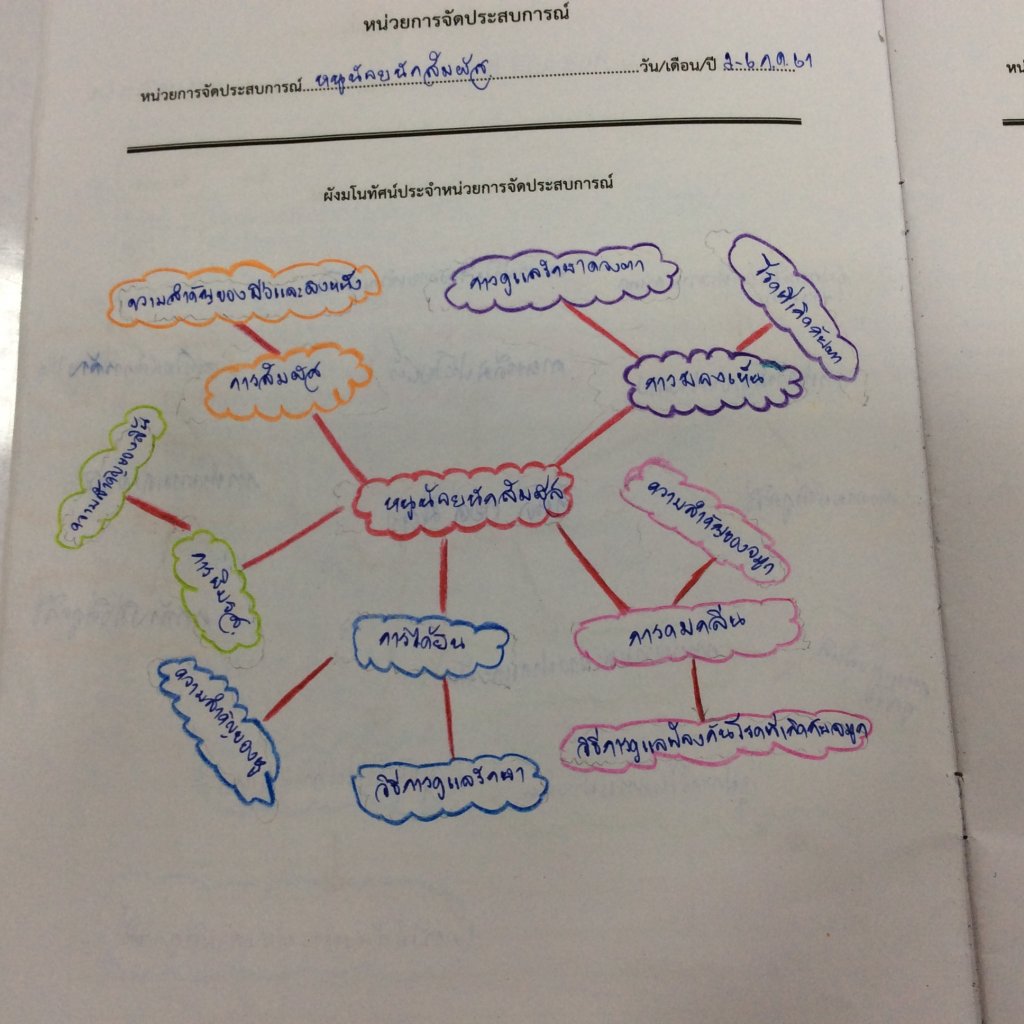 หน่วยการจัดประสบการณ์
หน่วยการจัดประสบการณ์ หนูน้อยนักสัมผัส วัน/เดือน/ปี 2-6 ก.ค. 61
ผังมโนทัศน์ประจำหน่วยการจัดประสบการณ์
ความสำคัญของผิวและลงหนัง
การสัมผัส
การดูแลรักษาดวงตา
โรคที่เกิดกับตา
การมองเห็น
ความสำคัญของลิ้น
หนูน้อยนักสัมผัส
ความสำคัญของจมูก
การชิมรส
การได้ยิน
การดมกลิ่น
ความสำคัญของหู
วิธีการดูแลรักษา
วิธีการดูแลป้องกันโรคที่เกิดกับจมูก